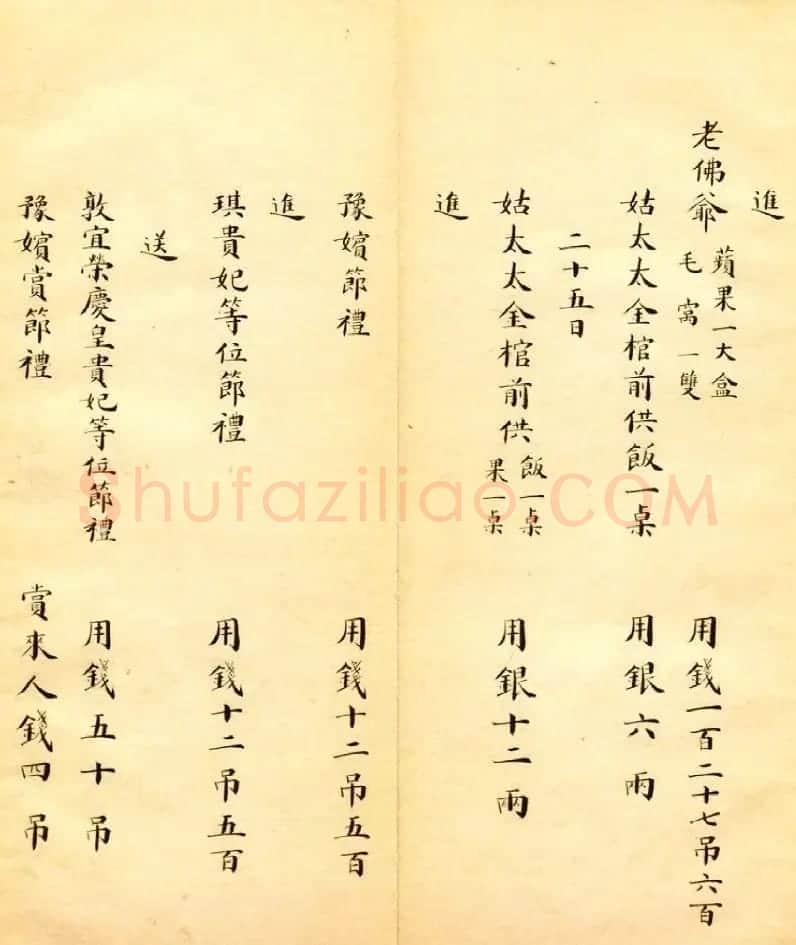 進
老佛爺 蘋果一大盒 毛窩一雙 用錢一百二十七吊六百
姑太太金棺前供飯一桌 用銀六兩
二十五日
姑太太金棺前供 飯一桌 果一桌 用銀十二兩
進
豫嬪節禮 用錢十二吊五百
進
琪貴妃等位節禮 用錢十二吊五百
送
敦宜榮慶皇貴妃等位節禮 用錢五十吊
豫嬪賞節禮 賞來人錢四吊
Shufaziliao.COM